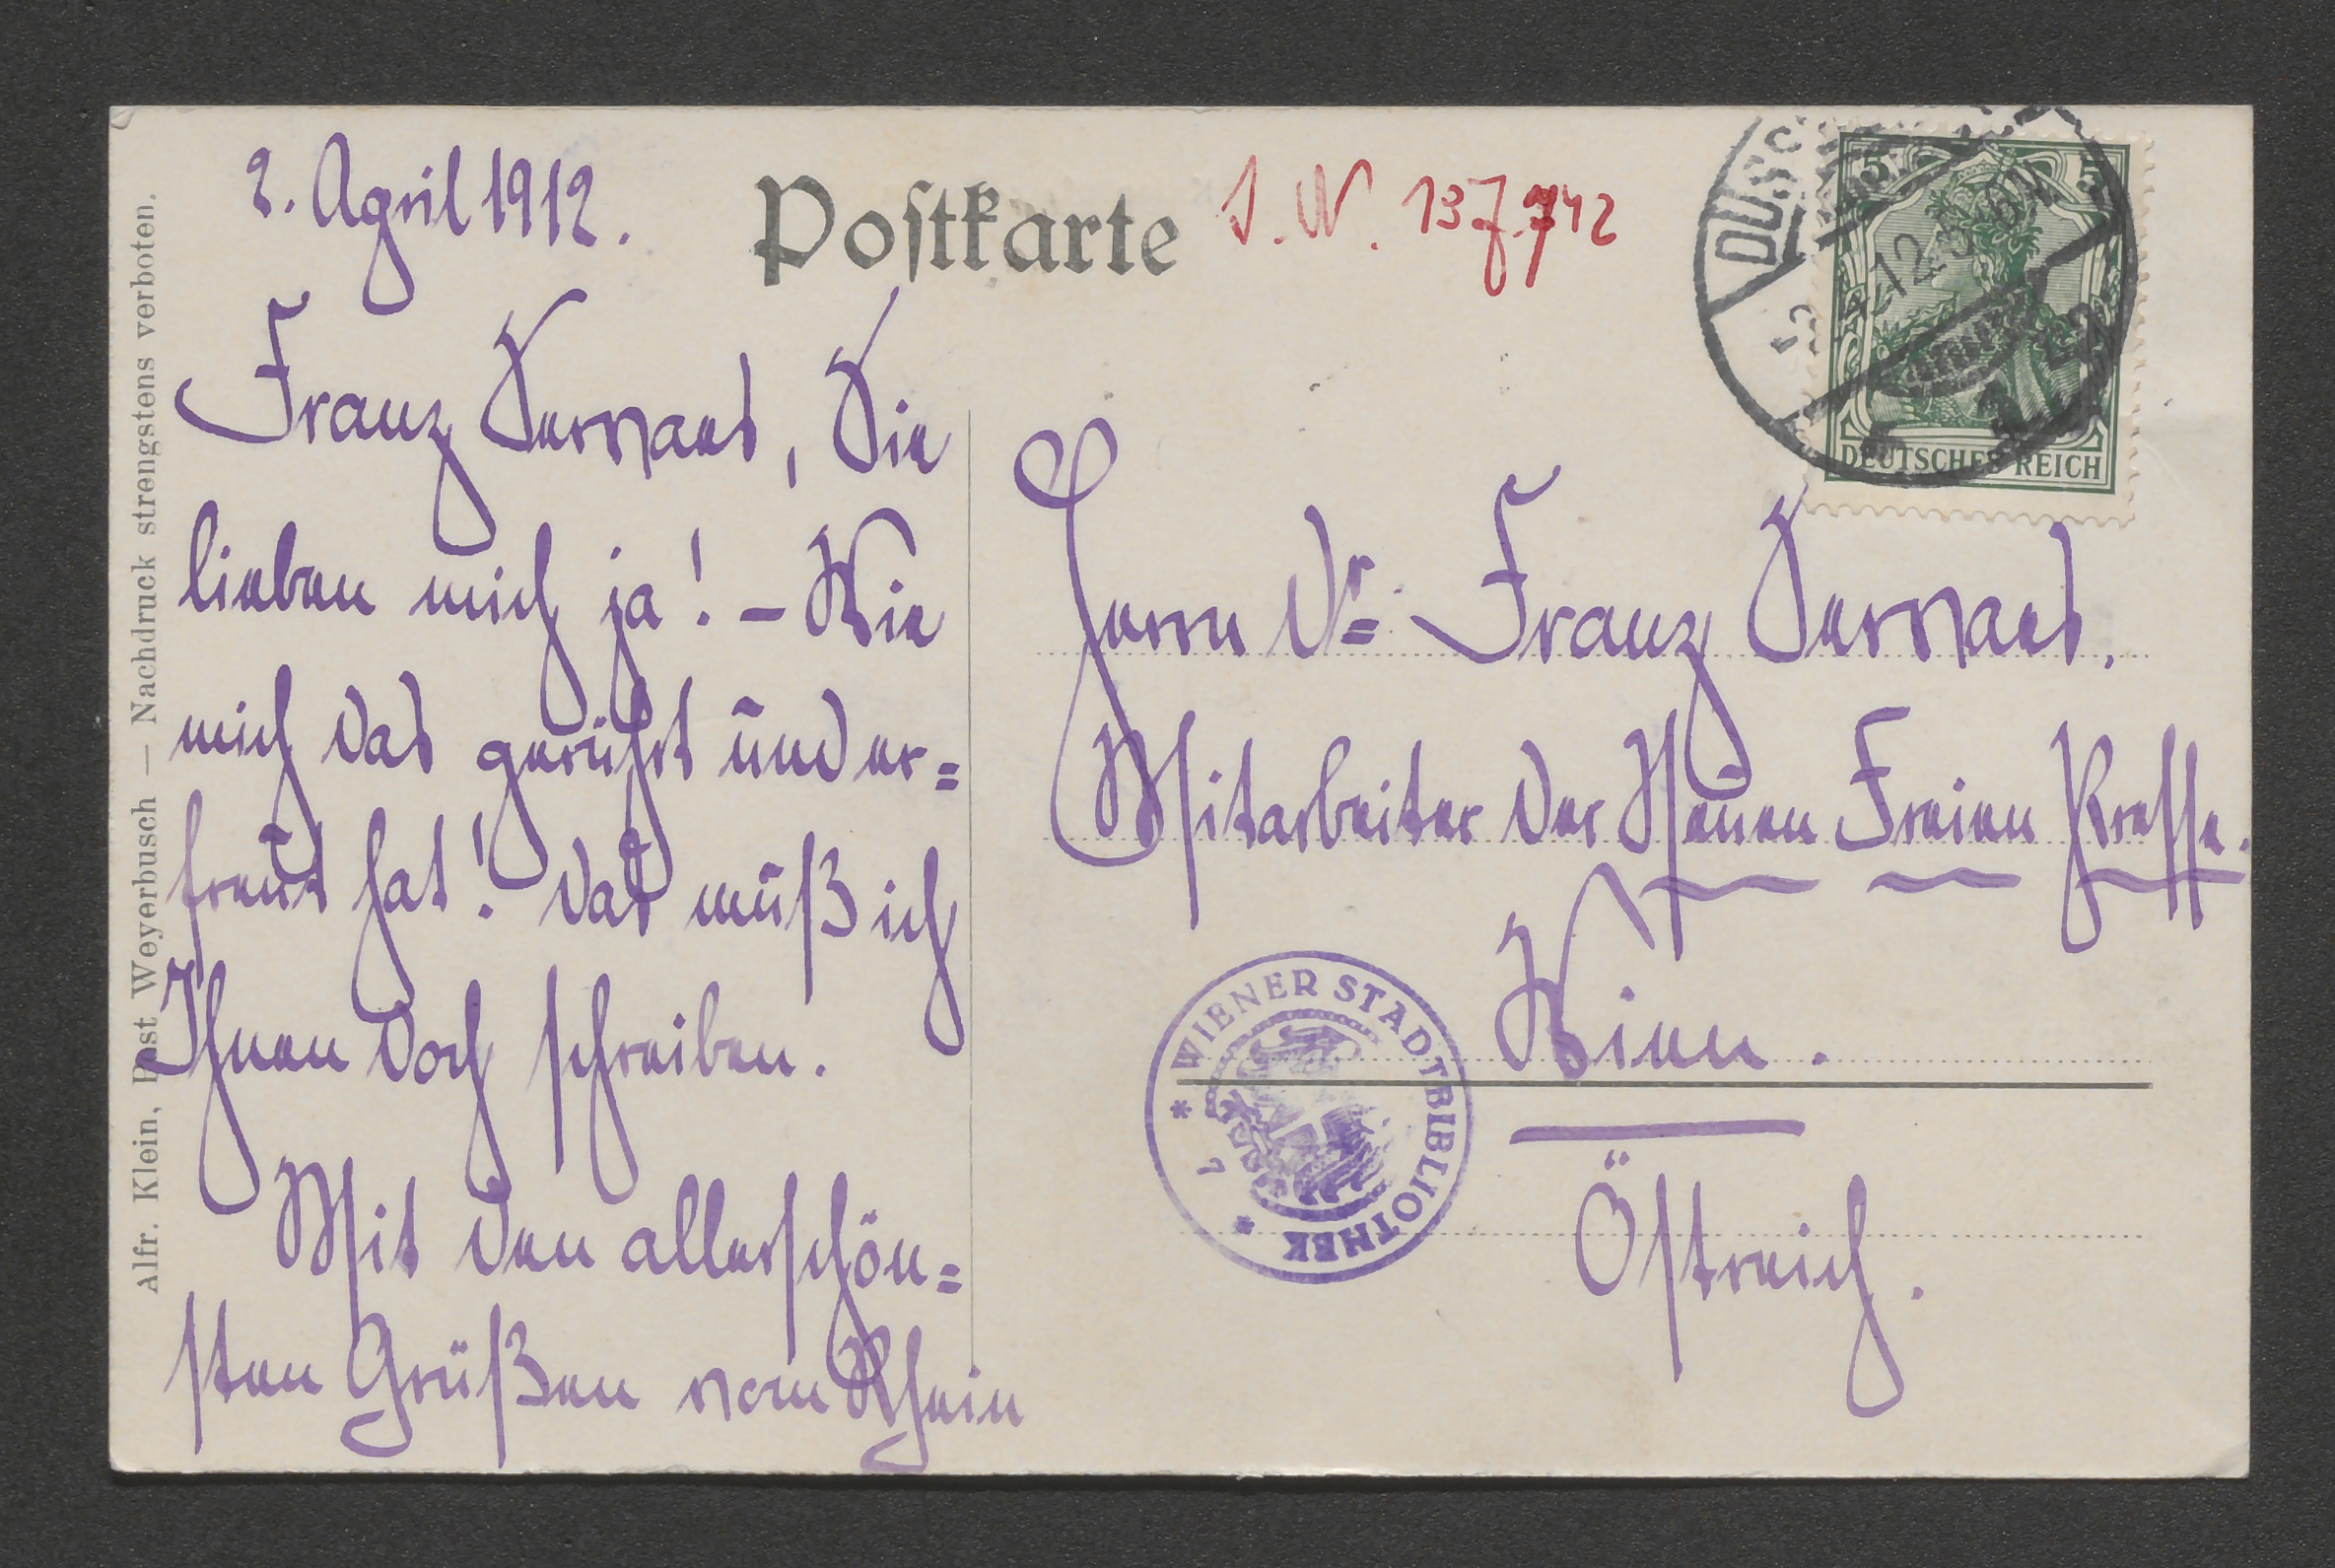 2. April 1912.
Postkarte
I. N. 137.742
Franz Servaes, Sie
lieben mich ja! – Wie
mich das gerührt und er=
freut hat! Das muß ich
Ihnen doch schreiben.
Mit den allerschön=
sten Grüßen vom Rhein
Herrn Dr. Franz Servaes.
Mitarbeiter der Neuen Freien Presse.
Wien.
Östreich.
WIENER STADTBIBLIOTHEK
DEUTSCHES REICH
5 5
Alfr. Klein, Post Weyerbusch — Nachdruck strengstens verboten.